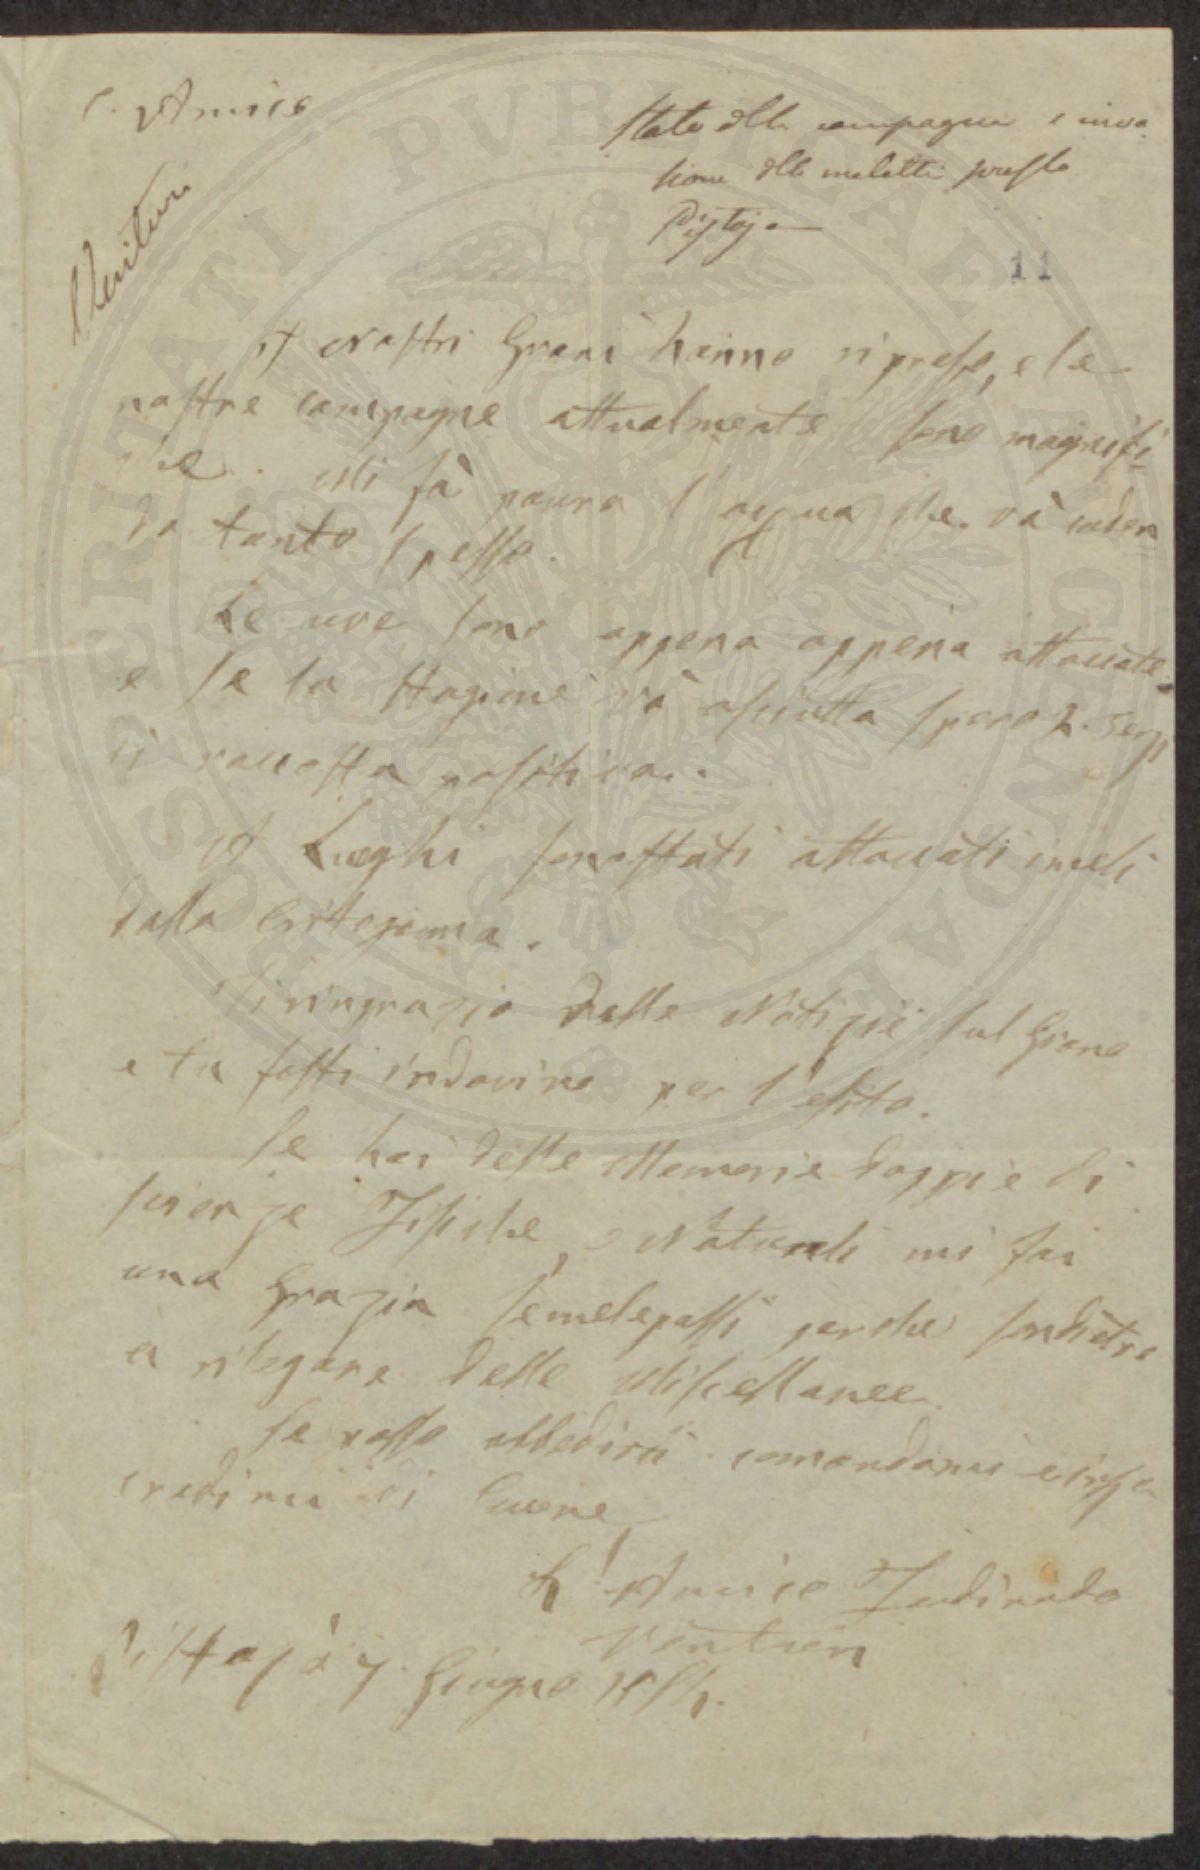 C. Amico
Stato della campagna e inva
sione della malattia presso
Pistoja
11
I Nostri Grani hanno ripreso, e le
nostre campagne attualmente sono magnifi
che. Mi fà paura l'acqua che và caden
do tanto spesso.
Le uve sono appena appena attaccate,
e se la stagione và asciutta spero 2. terzi
di raccolta positiva.
I Luoghi sono stati attaccati
dalla Crittogama.
Ti ringrazio delle Notizie sul Grano
e tu fosti indovino per l'esito.
Se hai delle Memorie doppie di
scienze Fisiche, e Naturali mi fai
una Grazia se me le passi perche son dietro
a rilegare delle Miscellanee.
Se posso obbedirti comandami e
credimi di Cuore
L'Amico Ferdinando
Pistoja 7. Giugno